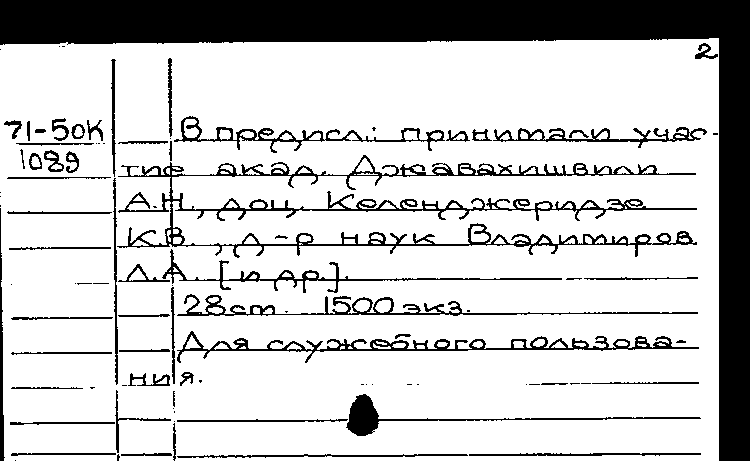 2
71-50К
1089
В предисл.: принимали учас-
тие акад. Джавахишвили
А.Н., доц. Келенджеридзе
К.В., д-р наук Владимиров
Л.А. [и др].
28 cm. 1500 экз.
Для служебного пользова-
ния.